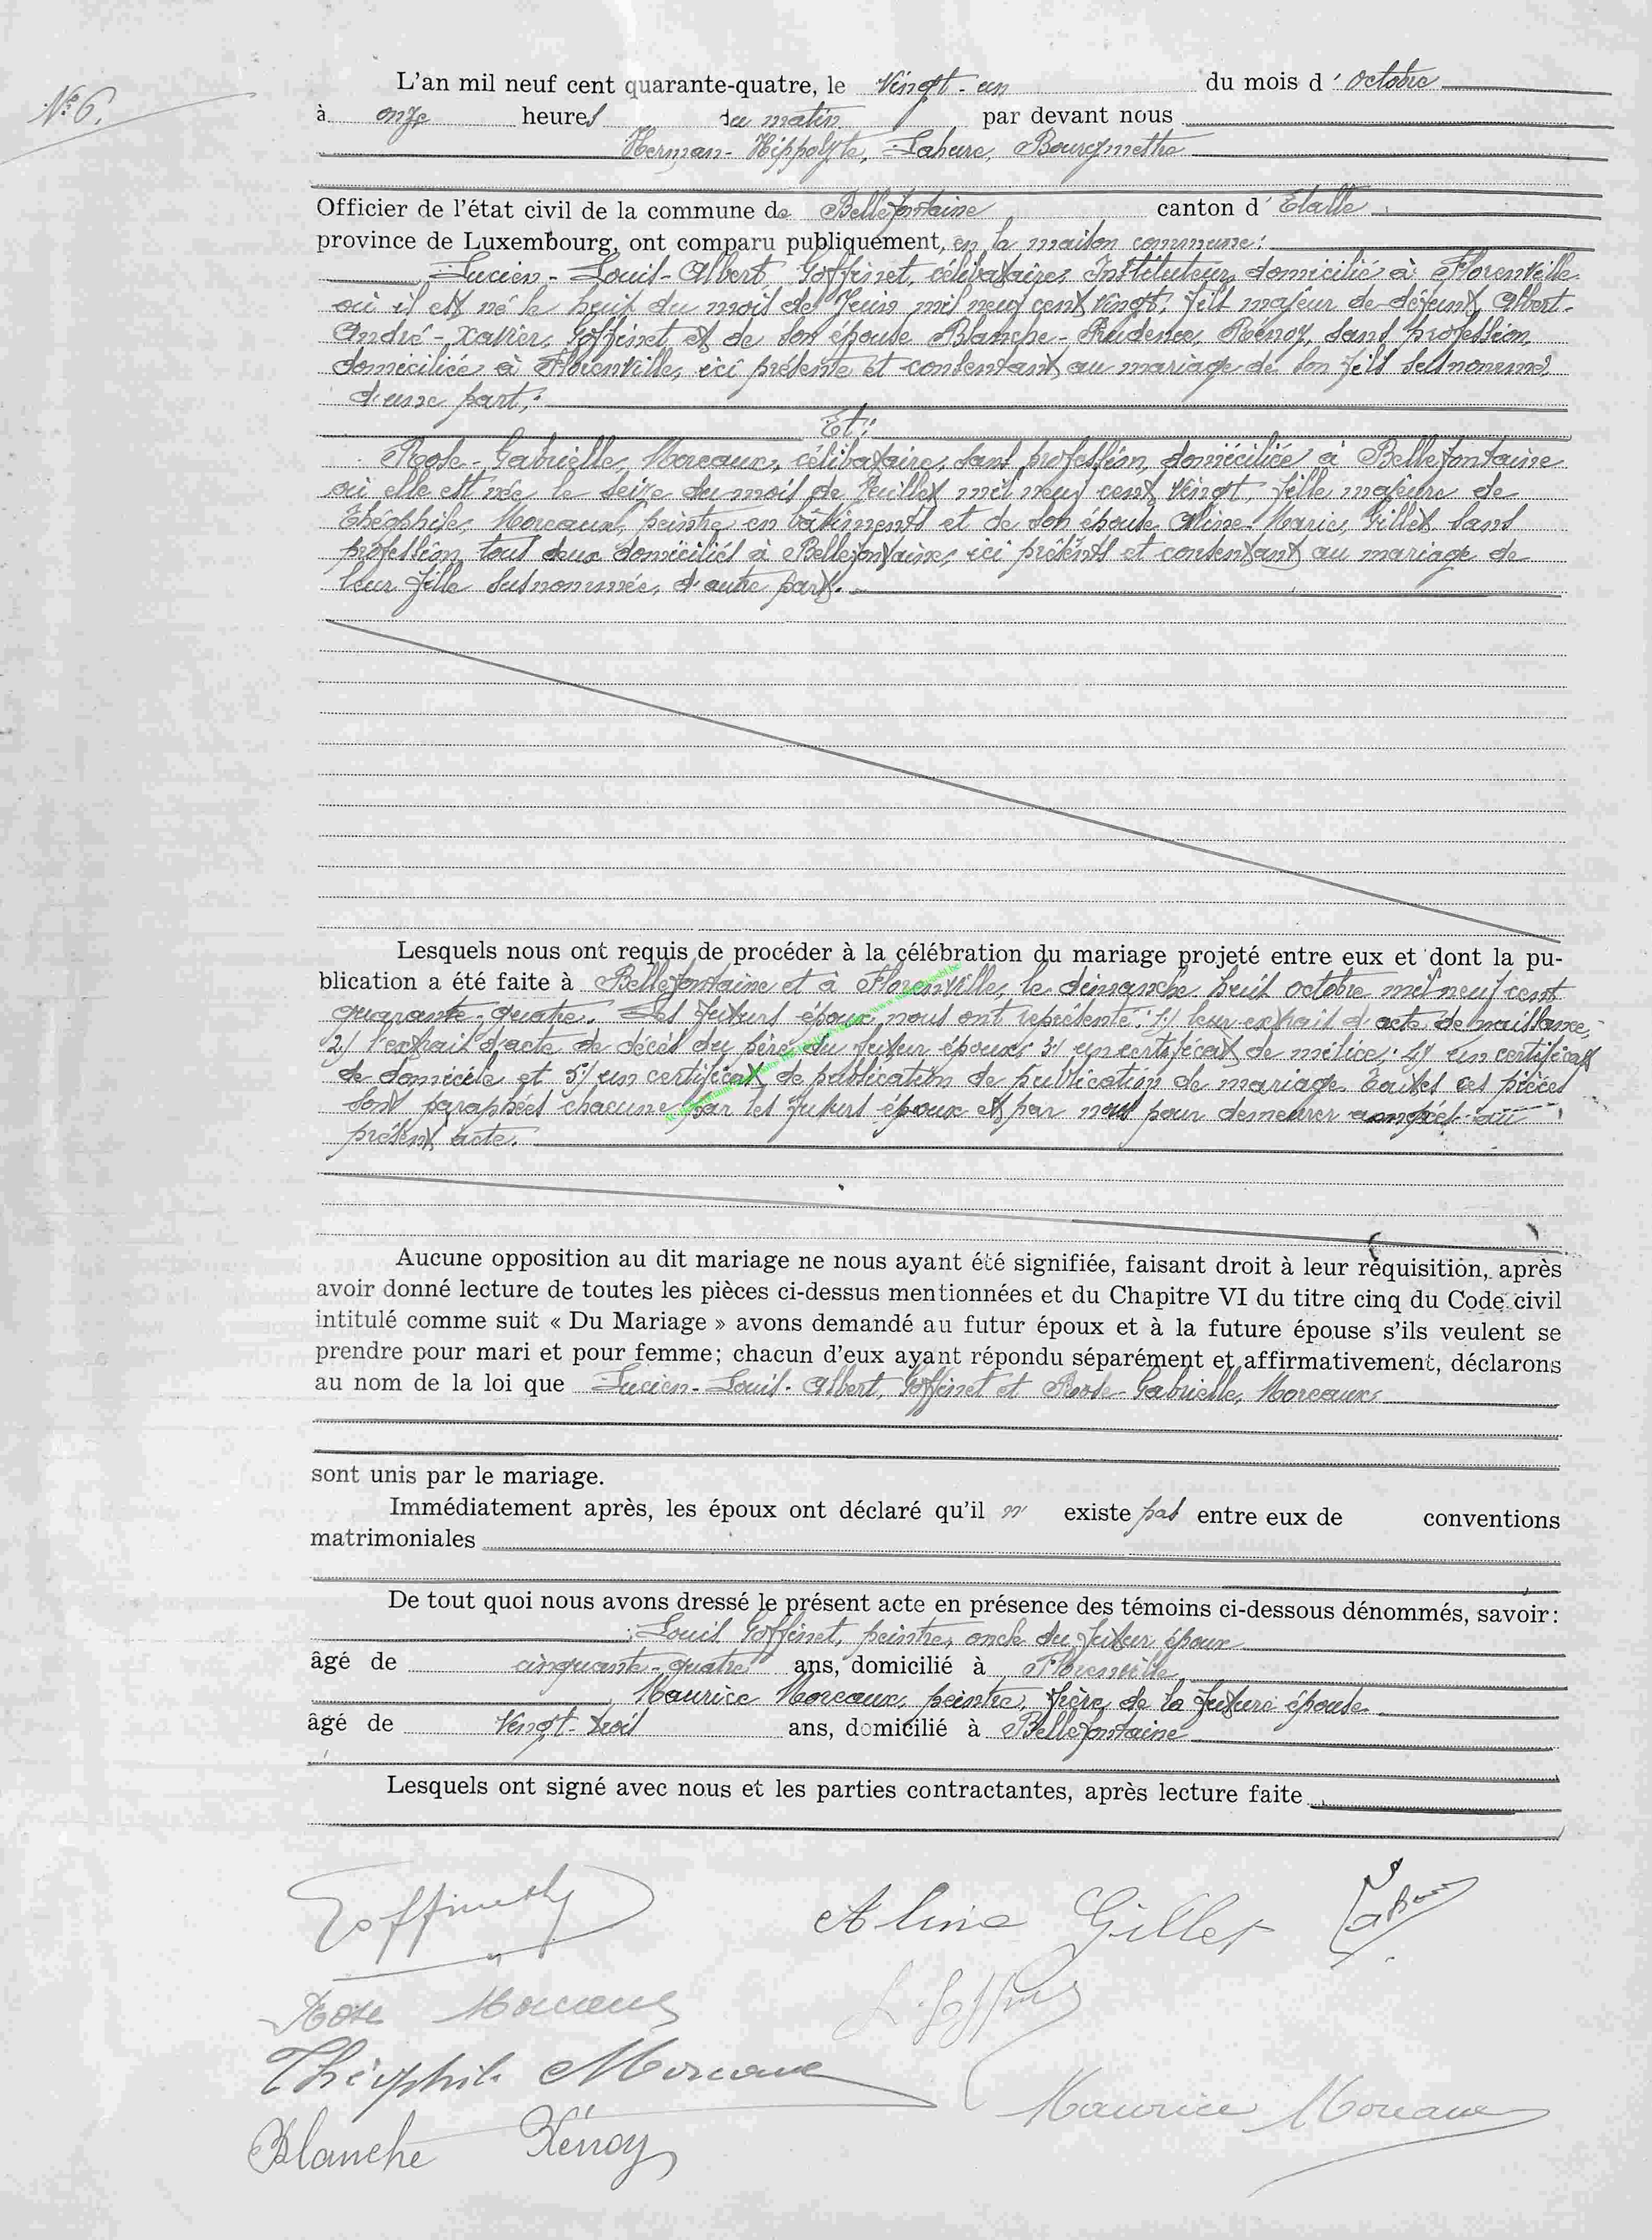 N° 6.
L'an mil neuf cent quarante-quatre, le Vingt-un du mois d'Octobre
à onze heures du matin par devant nous
Herman-Hippolyte, Lahure, Bourgmestre
Officier de l'état civil de la commune de Bellefontaine canton d'Etalle
province de Luxembourg, ont comparu publiquement, en la maison commune:
Lucien-Louis-Albert, Goffinet, célibataire, Instituteur, domicilié à Florenville
où il est né le huit du mois de Juin mil neuf cent vingt, fils majeur de défunt, Albert-
André-Xavier, Goffinet et de son épouse Blanche-Prudence, Rénoy, sans profession,
domiciliée à Florenville, ici présente et consentant au mariage de son fils susnommé,
d'une part;
Et:
Rose-Gabrielle, Moreaux, célibataire, sans profession, domiciliée à Bellefontaine
où elle est née le seize du mois de Juillet mil neuf cent vingt, fille majeure de
Théophile, Moreaux, peintre en bâtiments et de son épouse Aline-Marie, Gillet sans
profession, tous deux domiciliés à Bellefontaine, ici présents et consentant au mariage de
leur fille susnommée, d'autre part.
Lesquels nous ont requis de procéder à la célébration du mariage projeté entre eux et dont la pu-
blication a été faite à Bellefontaine et à Florenville, le dimanche huit octobre mil neuf cent
quarante-quatre. Les futurs époux nous ont représenté: 1) leur extrait d'acte de naissance,
2) l'extrait d'acte de décès du père du futur époux; 3) un certificat de milice; 4) un certificat
de domicile et 5) un certificat de publication de publication de mariage. Toutes ces pièces
sont paraphées chacune par les futurs époux et par nous pour demeurer annexées au
présent acte.
Aucune opposition au dit mariage ne nous ayant été signifiée, faisant droit à leur réquisition, après
avoir donné lecture de toutes les pièces ci-dessus mentionnées et du Chapitre VI du titre cinq du Code civil
intitulé comme suit « Du Mariage » avons demandé au futur époux et à la future épouse s'ils veulent se
prendre pour mari et pour femme; chacun d'eux ayant répondu séparément et affirmativement, déclarons
au nom de la loi que Lucien-Louis-Albert, Goffinet et Rose-Gabrielle, Moreaux
sont unis par le mariage.
Immédiatement après, les époux ont déclaré qu'il n' existe pas entre eux de conventions
matrimoniales
De tout quoi nous avons dressé le présent acte en présence des témoins ci-dessous dénommés, savoir:
Louis Goffinet, peintre, oncle du futur époux
âgé de cinquante-quatre ans, domicilié à Florenville
Maurice Moreaux, peintre, frère de la future épouse
âgé de Vingt-trois ans, domicilié à Bellefontaine
Lesquels ont signé avec nous et les parties contractantes, après lecture faite
Goffinet
Aline Gillet
Lahure
Rose Moreaux
L. Goffinet
Théophile Moreaux
Maurice Moreaux
Blanche Rénoy